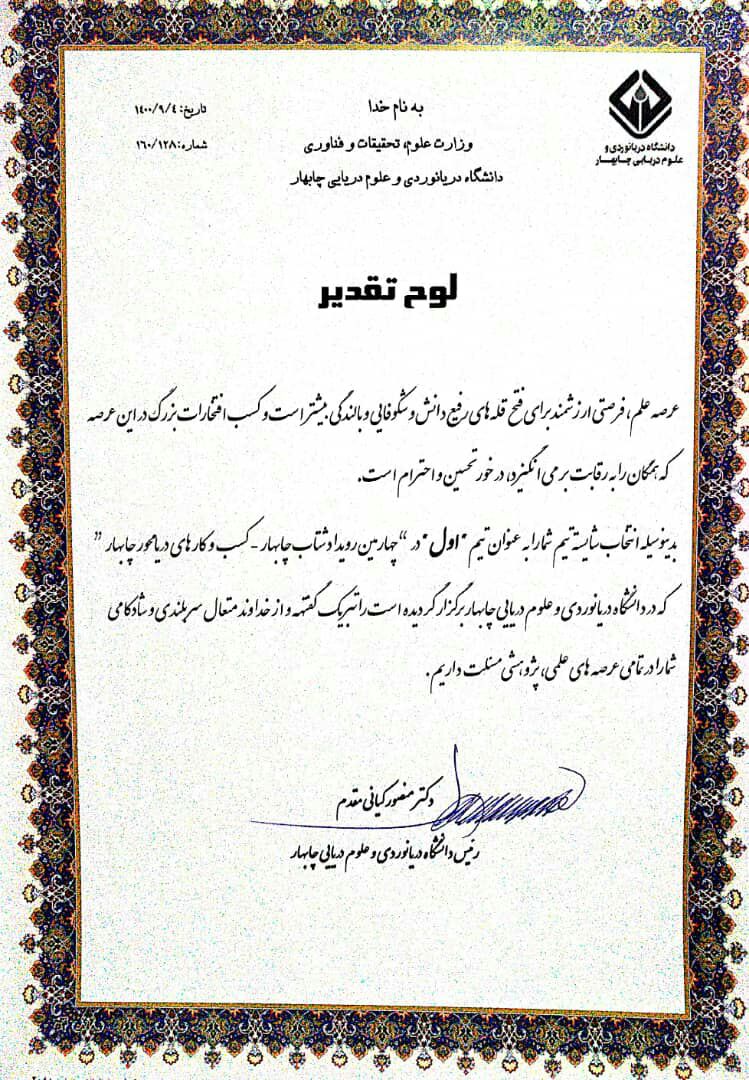 به نام خدا
وزارت علوم، تحقیقات و فناوری
دانشگاه دریانوردی و علوم دریایی چابهار
تاریخ: ۱۴۰۰/۹/۴
شماره: ۱۶۰/۱۲۸
دانشگاه دریانوردی و
علوم دریایی چابهار
لوح تقدیر
عرصه علم، فرصتی ارزشمند برای فتح قله های رفیع دانش و شکوفایی و بالندگی بیشتر است و کسب افتخارات بزرگ در این عرصه
که همگان را به رقابت بر می انگیزد، در خور تحسین و احترام است.
بدینوسیله انتخاب شایسته تیم شما را به عنوان تیم "اول" در "چهارمین رویداد شتاب چابهار - کسب و کارهای دریامحور چابهار"
که در دانشگاه دریانوردی و علوم دریایی چابهار برگزار گردیده است را تبریک گفته و از خداوند متعال سربلندی و شادکامی
شما را در تمامی عرصه های علمی، پژوهشی مسئلت داریم.
دکتر منصور کیانی مقدم
رئیس دانشگاه دریانوردی و علوم دریایی چابهار